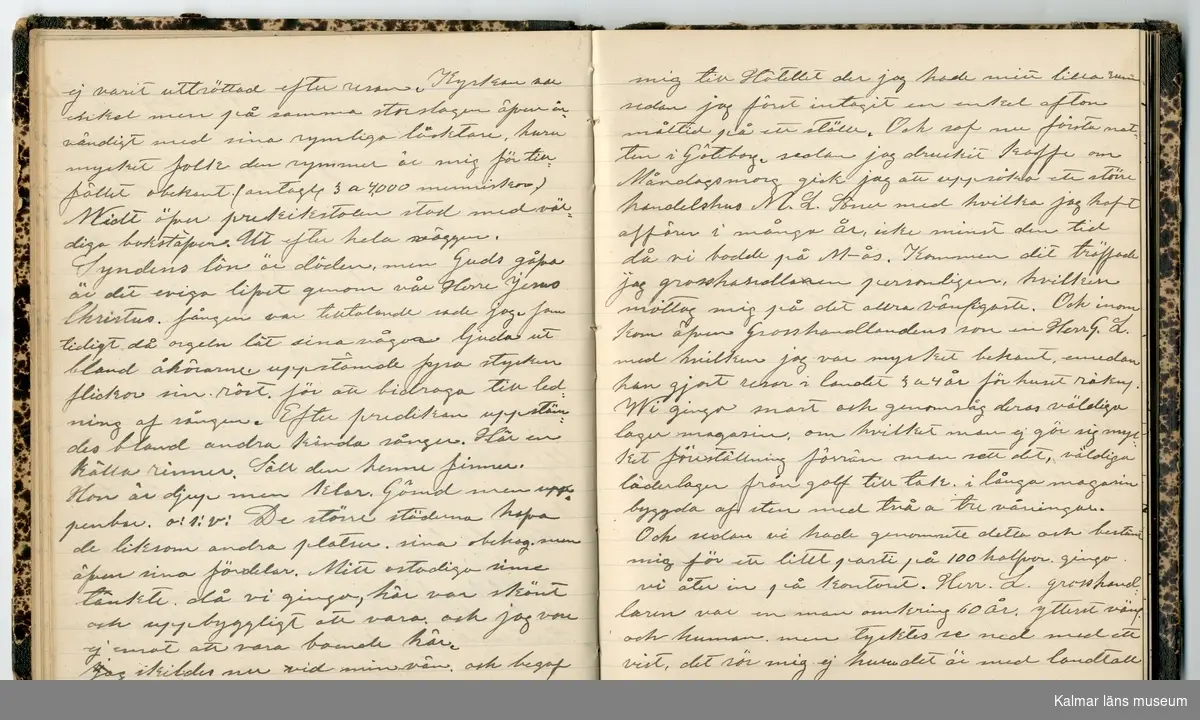 ej varit uttröttad efter resan. Kyrkan var
enkel men på samma storslagen äfven in-
vändigt med sina rymliga läktare, huru
mycket folk den rymmer är mig för till-
fället obekant (antagl. 3 a 4000 menniskor)
Midt öfver predikstolen stod med väl-
diga bokstäfver. Ut efter hela väggen.
Syndens lön är döden, men Guds gåfva
är det eviga lifvet genom vår Herre Jesus
Christus. Sången var tilltalande sade jag. Sam
tidigt då orgeln lät sina vågor ljuda ut
bland åhörarne uppstämde fyra stycken
flickor sin röst, för att bidraga till led-
ning af sången. Efter predikan uppstäm-
des bland andra kända sånger. Här en
källa rinner. Säll den henne finner.
Hon är djup men klar. Gömd men uppe
penbar. o: s: v: De större städerna hafva
de liksom andra platser. sina obehag. men
äfven sina fördelar. Mitt ostadiga sinne
tänkte. då vi gingo, här var skönt
och uppbyggligt att vara. och jag vore
ej emot att vara boende här.
Jag skildes nu vid min vän. och begaf
mig till Hotellet der jag hade mitt lilla rum
sedan jag först intagit en enkel afton
måltid på ett ställe. Och sof nu första nat-
ten i Göteborg. sedan jag druckit kaffe om
Måndagsmorg gick jag att uppsöka ett större
handelshus M. L. Söner med hvilka jag haft
affärer i många år, icke minst den tid
då vi bodde på M-ås. Kommen dit träffade
jag grosshandlaren personligen, hvilken
mottog mig på det allra vänligaste. Och inom
kom äfven Grosshandlandens son en Herr G. L.
med hvilken jag var mycket bekant, emedan
han gjort resor i landet 3 a 4 år för huset räkn.
Wi gingo snart och genomsåg deras väldiga
lager magasin, om hvilket man ej gör sig myc-
ket föreställning förrän man sett det, väldiga
läderlager från golf till tak. i långa magasin
byggda af sten med två a tre våningar.
Och sedan vi hade genomsett detta och bestäm
mig för ett litet parti på 100 halfpor. gingo
vi åter in på kontoret. Herr. L. grosshand-
laren var en man omkring 60 år. ytterst vänl.
och human. men tycktes se ned med ett
vist, det rör mig ej huru det är med landtall
Kalmar läns museum